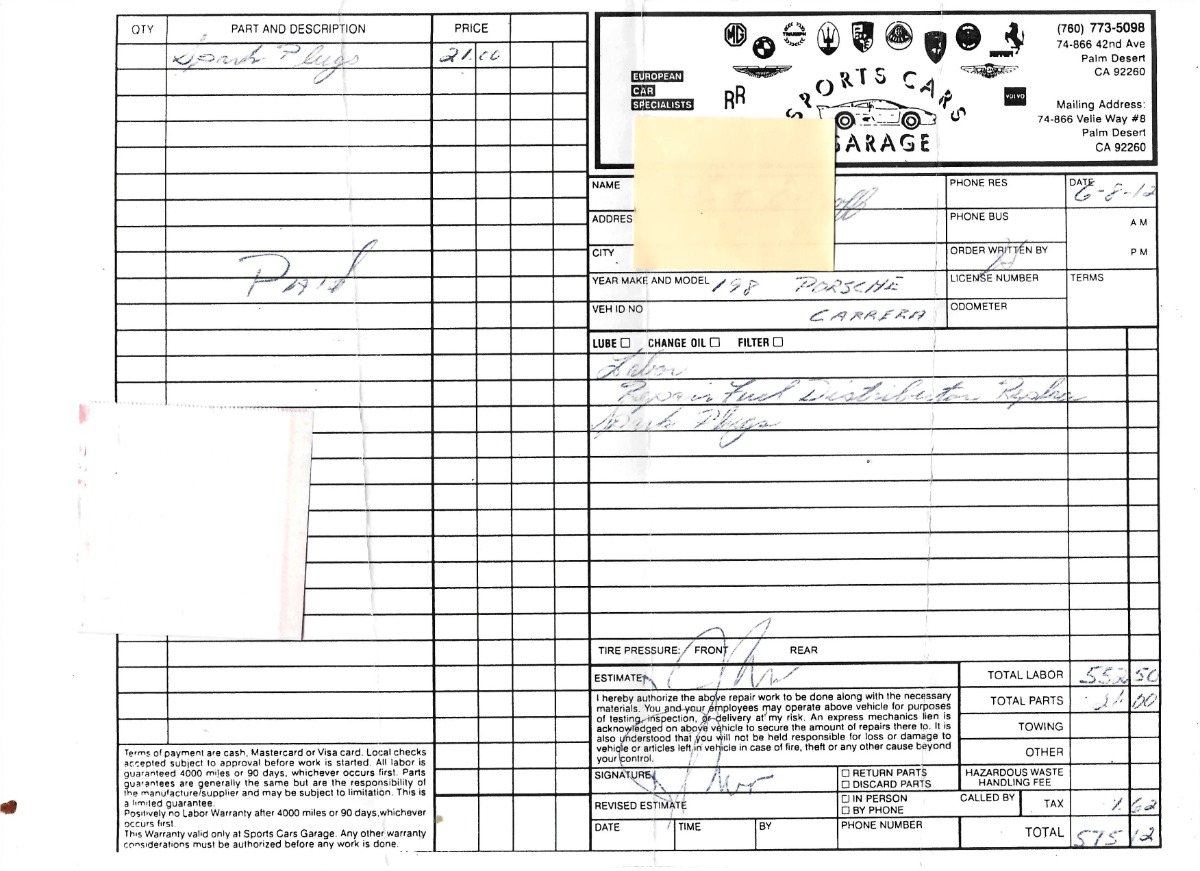 QTY PART AND DESCRIPTION PRICE
Spark Plugs 21.00
Paid
Terms of payment are cash, Mastercard or Visa card. Local checks
accepted subject to approval before work is started. All labor is
guaranteed 4000 miles or 90 days, whichever occurs first. Parts
guarantees are generally the same but are the responsibility of
the manufacture/supplier and may be subject to limitation. This is
a limited guarantee.
Positively no Labor Warranty after 4000 miles or 90 days, whichever
occurs first.
This Warranty valid only at Sports Cars Garage. Any other warranty
considerations must be authorized before any work is done.
EUROPEAN
CAR
SPECIALISTS
MG
TRIUMPH
RR
VOLVO
SPORTS CARS
GARAGE
(760) 773-5098
74-866 42nd Ave
Palm Desert
CA 92260
Mailing Address:
74-866 Velie Way #8
Palm Desert
CA 92260
NAME PHONE RES DATE 6-8-12
ADDRES PHONE BUS A M
CITY ORDER WRITTEN BY P M
YEAR MAKE AND MODEL 198 PORSCHE LICENSE NUMBER TERMS
VEH ID NO CARRERA ODOMETER
LUBE CHANGE OIL FILTER
Labor
Repair Fuel Distributor Replace
Spark Plugs
TIRE PRESSURE: FRONT REAR
ESTIMATE
I hereby authorize the above repair work to be done along with the necessary
materials. You and your employees may operate above vehicle for purposes
of testing, inspection, or delivery at my risk. An express mechanics lien is
acknowledged on above vehicle to secure the amount of repairs there to. It is
also understood that you will not be held responsible for loss or damage to
vehicle or articles left in vehicle in case of fire, theft or any other cause beyond
your control.
SIGNATURE
RETURN PARTS
DISCARD PARTS
REVISED ESTIMATE
IN PERSON
BY PHONE
DATE TIME BY PHONE NUMBER
TOTAL LABOR 552 50
TOTAL PARTS 21 00
TOWING
OTHER
HAZARDOUS WASTE
HANDLING FEE
CALLED BY TAX 1.62
TOTAL 575 12